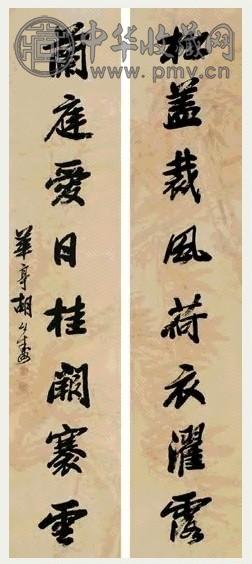 中华收藏网
www.pmyv.cn
松盖裁風荷衣濯露
蘭庭愛日桂闕褰雲
華亭胡公壽